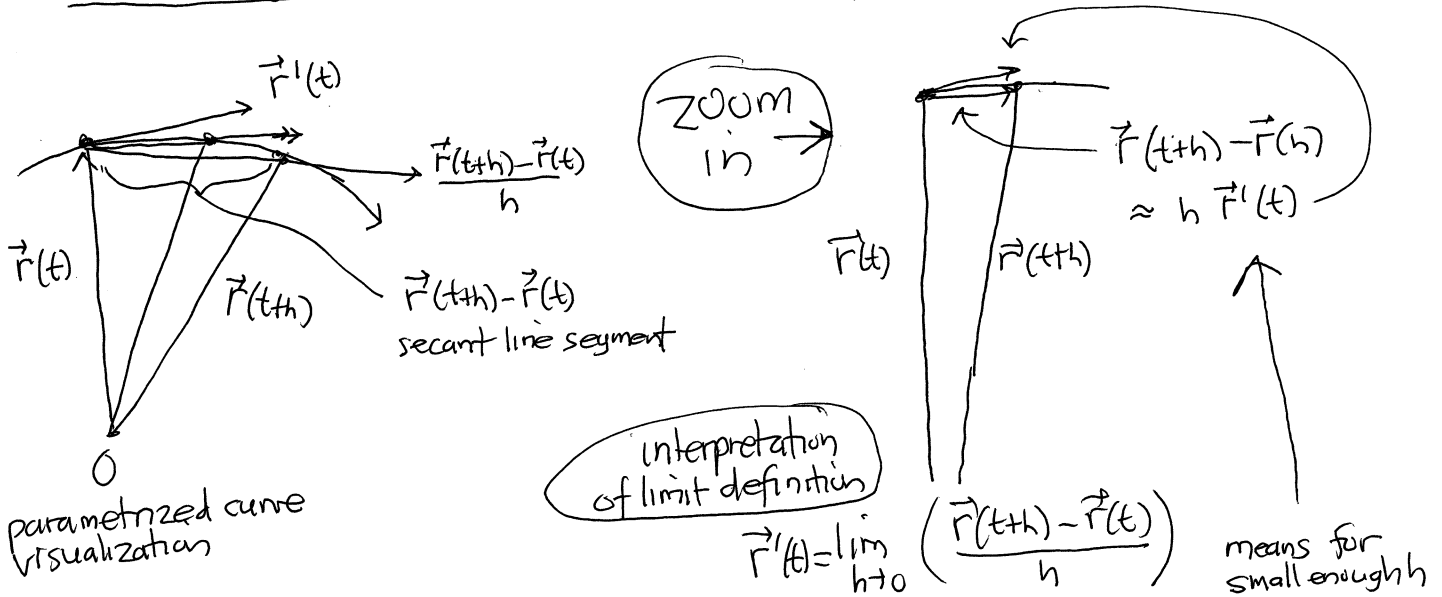 r⃗'(t)
r⃗(t+h)-r⃗(t)
h
r⃗(t)
r⃗(t+h)
r⃗(t+h)-r⃗(t)
secant line segment
O
parametrized curve
visualization
zoom
in
r⃗(t+h)-r⃗(h)
≈ h r⃗'(t)
r⃗(t)
r⃗(t+h)
interpretation
of limit definition
r⃗'(t)=lim h→0 ( r⃗(t+h) - r⃗(t) / h )
means for
small enough h